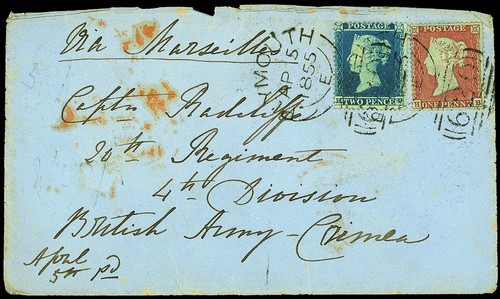 Via Marseilles
MOUTH
AP 5
1855
E
POSTAGE
TWO PENCE
POSTAGE
ONE PENNY
Captn Radcliffe
20th Regiment
4th Division
British Army - Crimea
April
5th pd